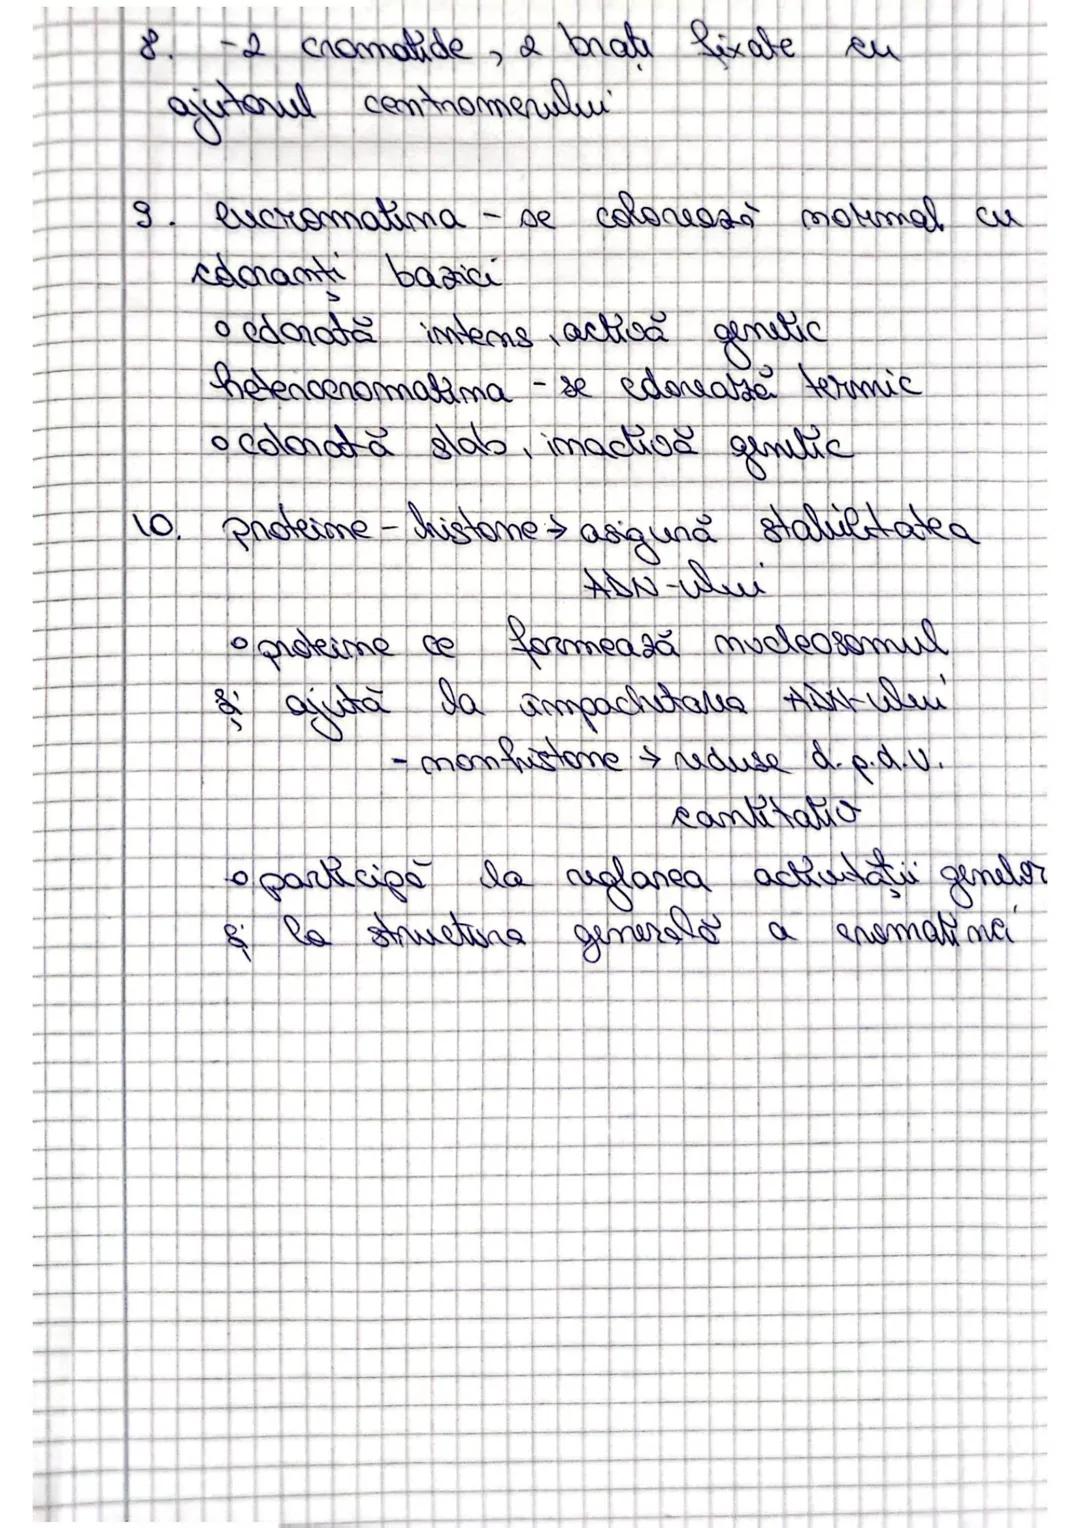 8. -2 cromatide, 2 brațe fixate cu
ajutorul centromerului
9. eucromatina - se colorează normal cu
coloranți bazici
o colorată intens, activă genetic
heterocromatima - se colorează termic
o colorată slab, inactivă genetic
10. proteine - histone → asigură stabilitatea
ADN-ului
o proteine ce formează nucleosomul
și ajută la împachetarea ADN-ului
- nonhistone → reduse d.p.d.v.
cantitativ
o participă la reglarea activității genelor
și la structura generală a cromatinei